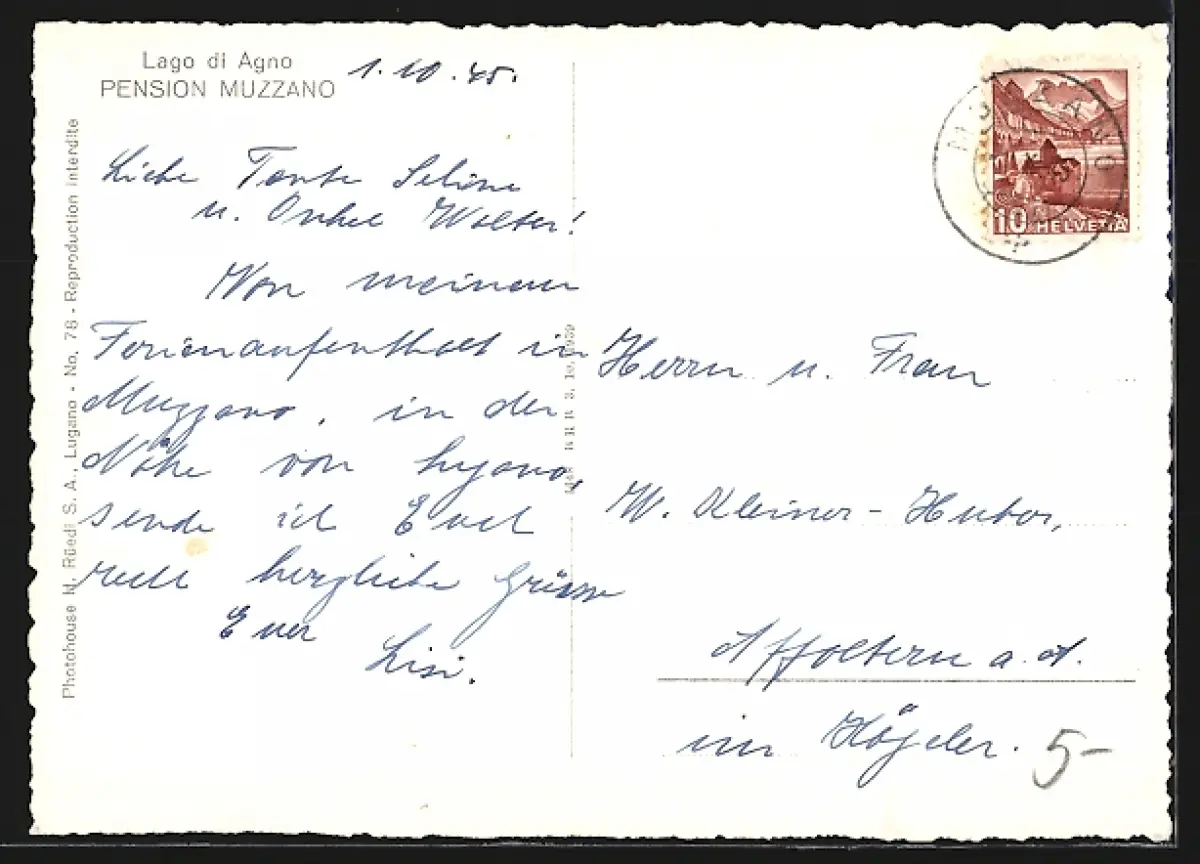 Lago di Agno
PENSION MUZZANO
1.10.45.
Liebe Tante Seline
u. Onkel Walter!
Von meinem
Ferienaufenthalt in
Muzzano, in der
Nähe von Lugano,
sende ich Euch
recht herzliche Grüsse
Euer
Lisi.
Photohouse H. Rüedi S. A., Lugano - No. 78 - Reproduction interdite
MUZZANO
10 HELVETIA
Herrn u. Frau
W. Kleiner-Huber,
Affoltern a. A.
im
5-